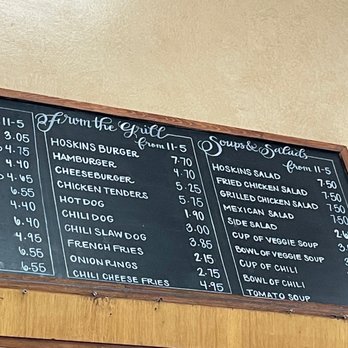 11-5
3.05
4.40
4.65
6.55
4.40
6.40
4.95
6.55
6.55
From the Grill
from 11-5
HOSKINS BURGER 7.70
HAMBURGER 4.70
CHEESEBURGER 5.25
CHICKEN TENDERS 5.75
HOT DOG 1.90
CHILI DOG 3.00
CHILI SLAW DOG 3.85
FRENCH FRIES 2.15
ONION RINGS 2.75
CHILI CHEESE FRIES 4.95
Soups & Salads
from 11-5
HOSKINS SALAD 7.50
FRIED CHICKEN SALAD 7.50
GRILLED CHICKEN SALAD 7.50
MEXICAN SALAD
SIDE SALAD
CUP OF VEGGIE SOUP
BOWL OF VEGGIE SOUP
CUP OF CHILI
BOWL OF CHILI
TOMATO SOUP